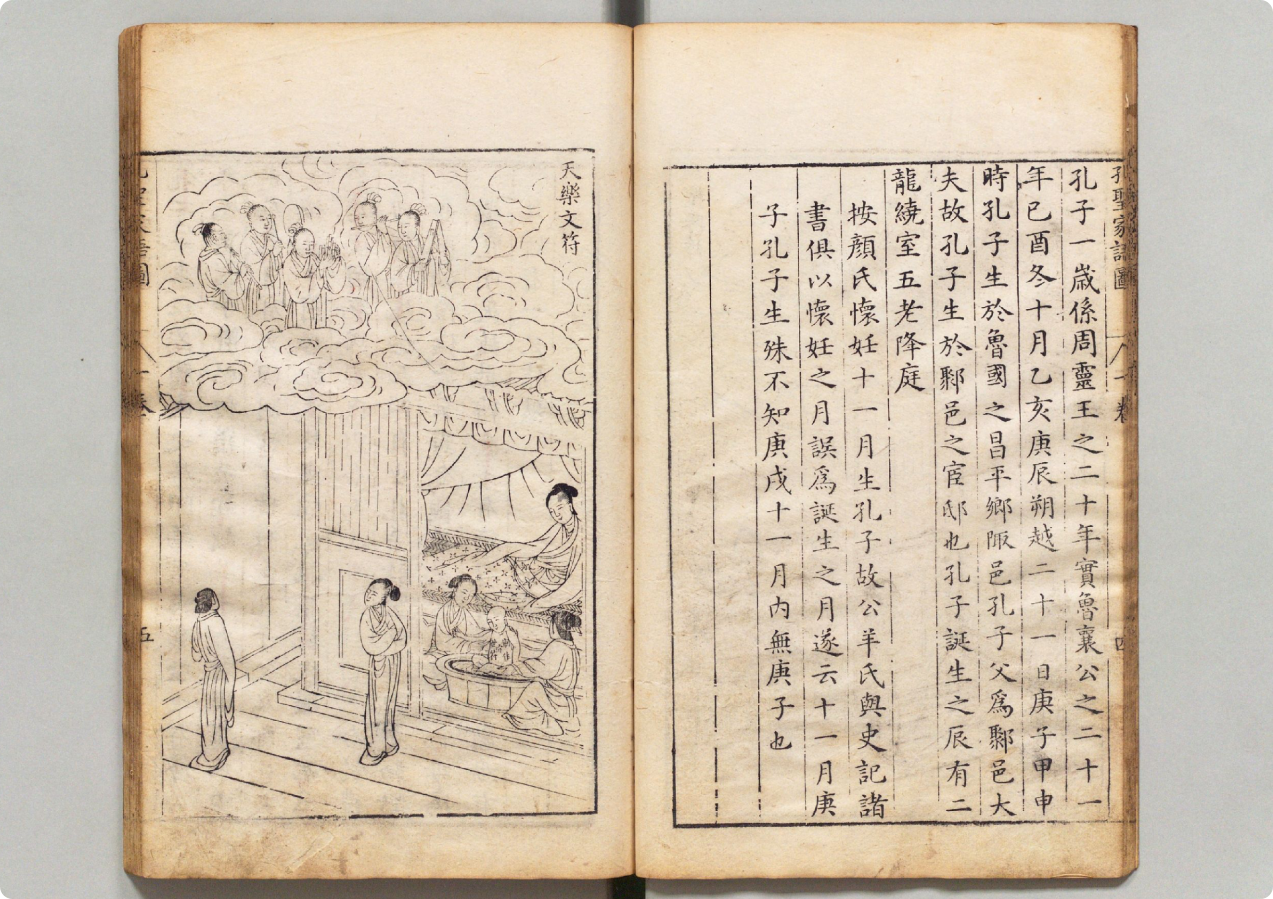 孔聖家語圖 八 一卷 四
孔子一歲係周靈王之二十年實魯襄公之二十一
年已酉冬十月乙亥庚辰朔越二十一日庚子甲申
時孔子生於魯國之昌平鄉陬邑孔子父為鄹邑大
夫故孔子生於鄹邑之宦邸也孔子誕生之辰有二
龍繞室五老降庭
按顏氏懷妊十一月生孔子故公羊氏與史記諸
書俱以懷妊之月誤為誕生之月遂云十一月庚
子孔子生殊不知庚戌十一月內無庚子也
天樂文符
五